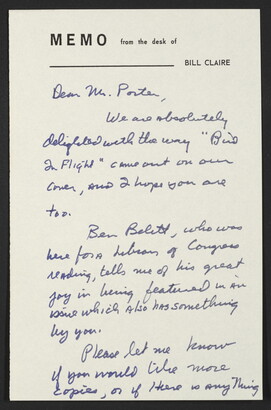 MEMO from the desk of
BILL CLAIRE
Dear Mr. Porter,
We are absolutely
delighted with the way "Bird
In Flight" came out on our
cover, and I hope you are
too.
Ben Belitt, who was
here for a Library of Congress
reading, tells me of his great
joy in being featured in an
issue which also has something
by you.
Please let me know
if you would like more
copies, or if there is anything